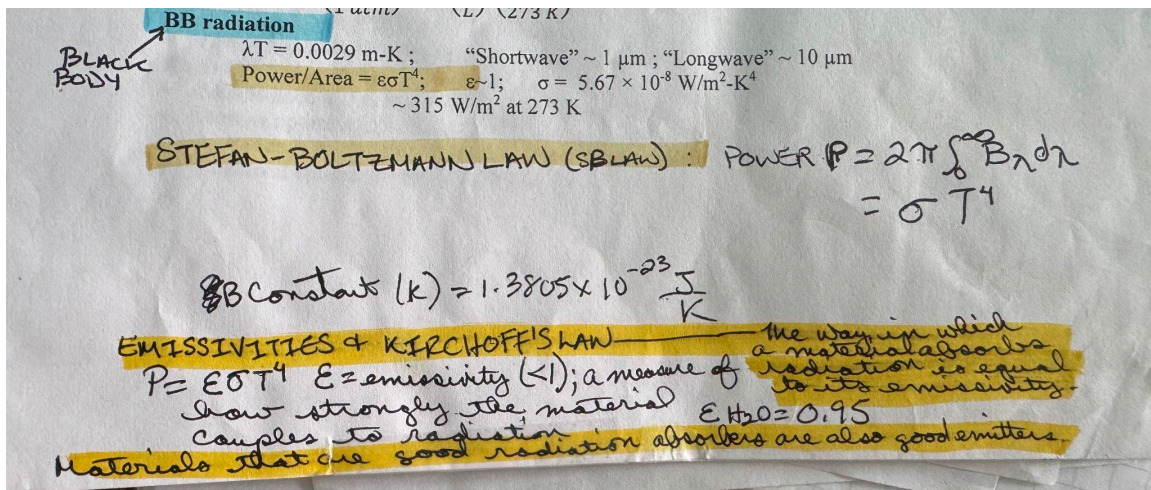 BB radiation
(L) (273 K)
BLACK
BODY
λT = 0.0029 m-K ; "Shortwave" ~ 1 μm ; "Longwave" ~ 10 μm
Power/Area = εσT⁴; ε~1; σ = 5.67 × 10⁻⁸ W/m²-K⁴
~ 315 W/m² at 273 K
STEFAN-BOLTZMANN LAW (SB LAW) : POWER P = 2π ∫₀^∞ Bλ dλ
= σ T⁴
B Constant (k) = 1.3805 x 10⁻²³ J/K
EMISSIVITIES & KIRCHOFF'S LAW — the way in which
a material absorbs
radiation is equal
to its emissivity.
P = εσT⁴ ε = emissivity (<1); a measure of
how strongly the material
couples to radiation. ε H₂O = 0.95
Materials that are good radiation absorbers are also good emitters.